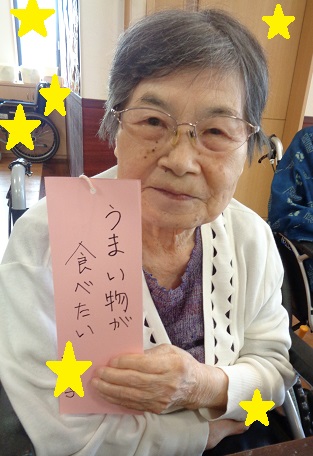 うまい物が
食べたい